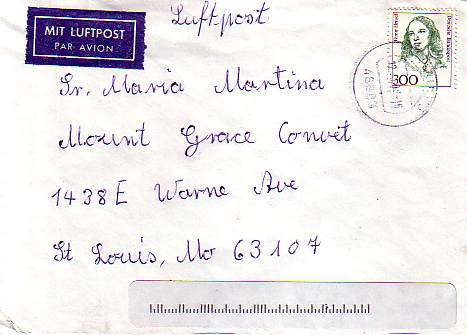 MIT LUFTPOST
PAR AVION
Luftpost
300
Sr. Maria Martina
Mount Grace Convet
1438 E Warne Ave
St Louis, Mo 63107